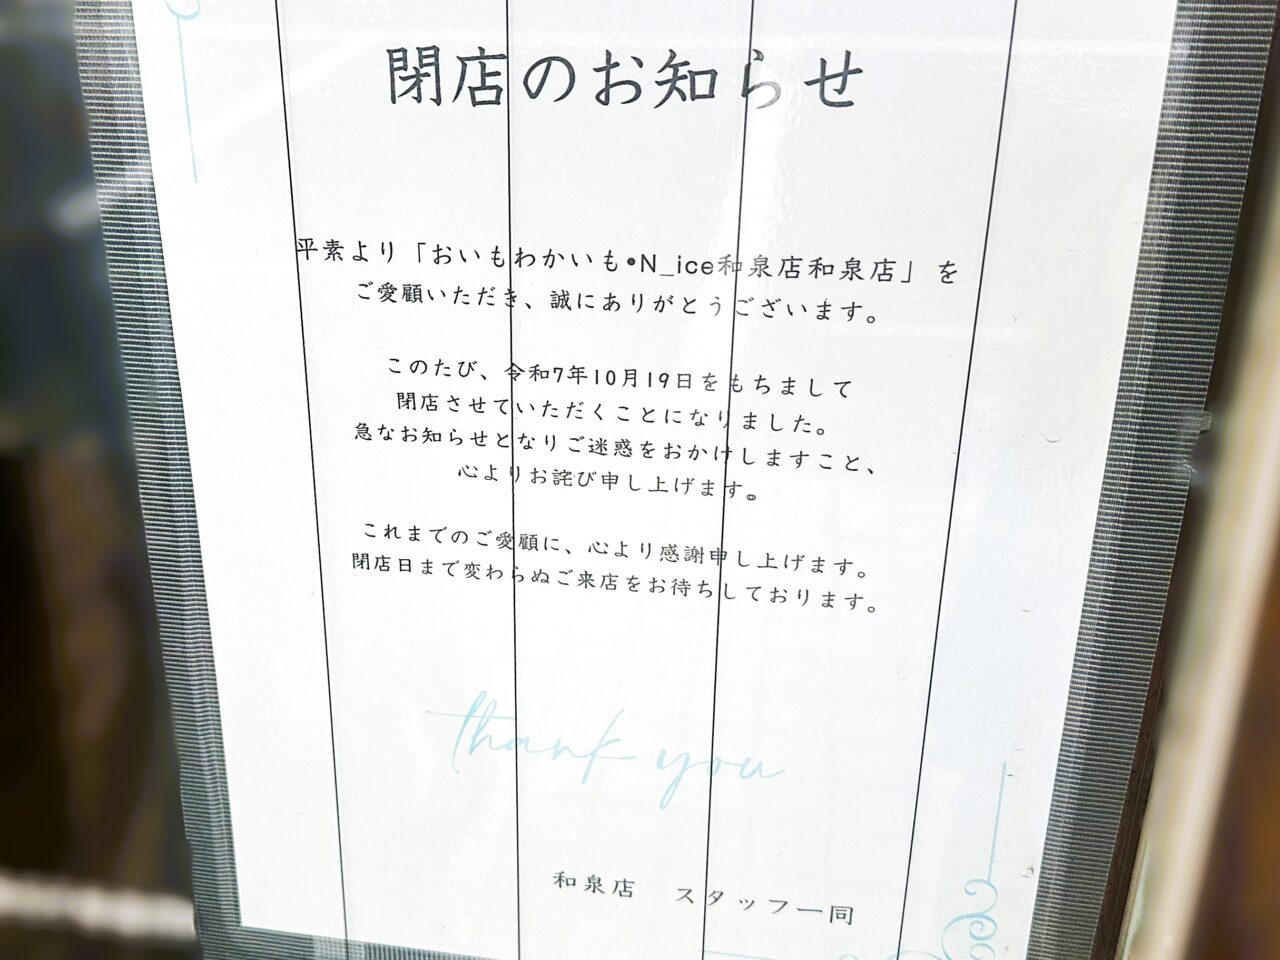 閉店のお知らせ
平素より「おいもわかいも•N_ice和泉店和泉店」を
ご愛顧いただき、誠にありがとうございます。
このたび、令和7年10月19日をもちまして
閉店させていただくことになりました。
急なお知らせとなりご迷惑をおかけしますこと、
心よりお詫び申し上げます。
これまでのご愛顧に、心より感謝申し上げます。
閉店日まで変わらぬご来店をお待ちしております。
thank you
和泉店　スタッフ一同